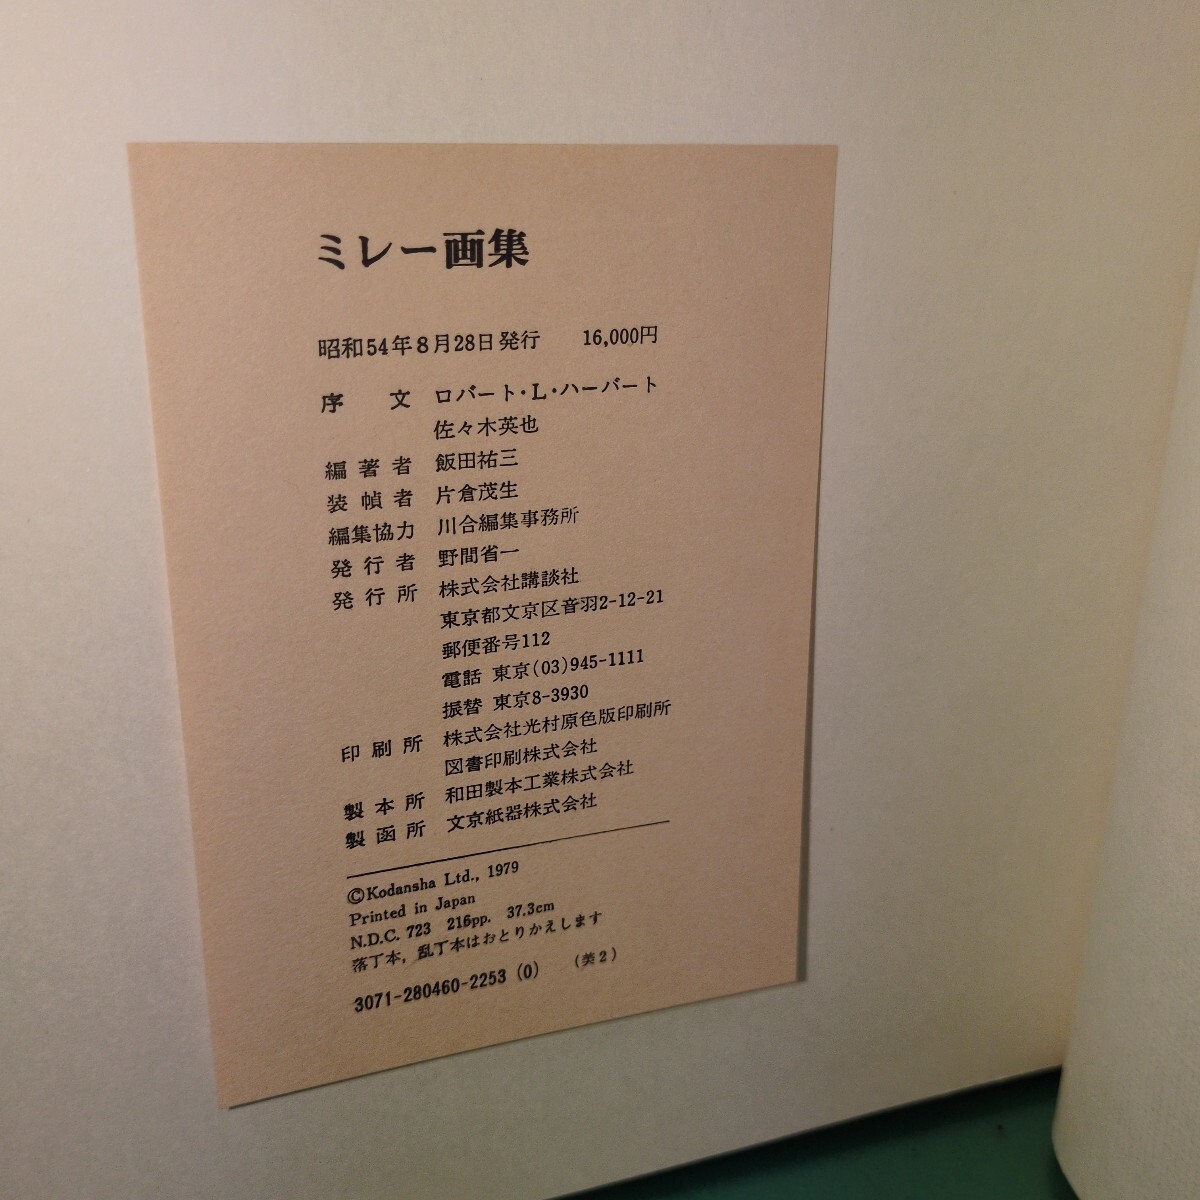 ミレー画集
昭和54年8月28日発行　16,000円
序　文　ロバート・L・ハーバート
佐々木英也
編著者　飯田祐三
装幀者　片倉茂生
編集協力　川合編集事務所
発行者　野間省一
発行所　株式会社講談社
東京都文京区音羽2-12-21
郵便番号112
電話 東京(03)945-1111
振替 東京8-3930
印刷所　株式会社光村原色版印刷所
図書印刷株式会社
製本所　和田製本工業株式会社
製函所　文京紙器株式会社
©Kodansha Ltd., 1979
Printed in Japan
N.D.C. 723　216pp.　37.3cm
落丁本，乱丁本はおとりかえします
3071-280460-2253 (0)　(美2)